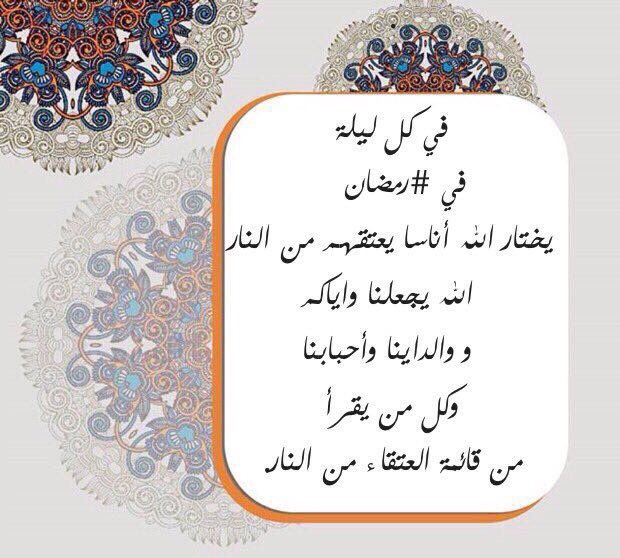 في كل ليلة
في #رمضان
يختار الله أناسا يعتقهم من النار
الله يجعلنا واياكم
و والداينا وأحبابنا
وكل من يقرأ
من قائمة العتقاء من النار.